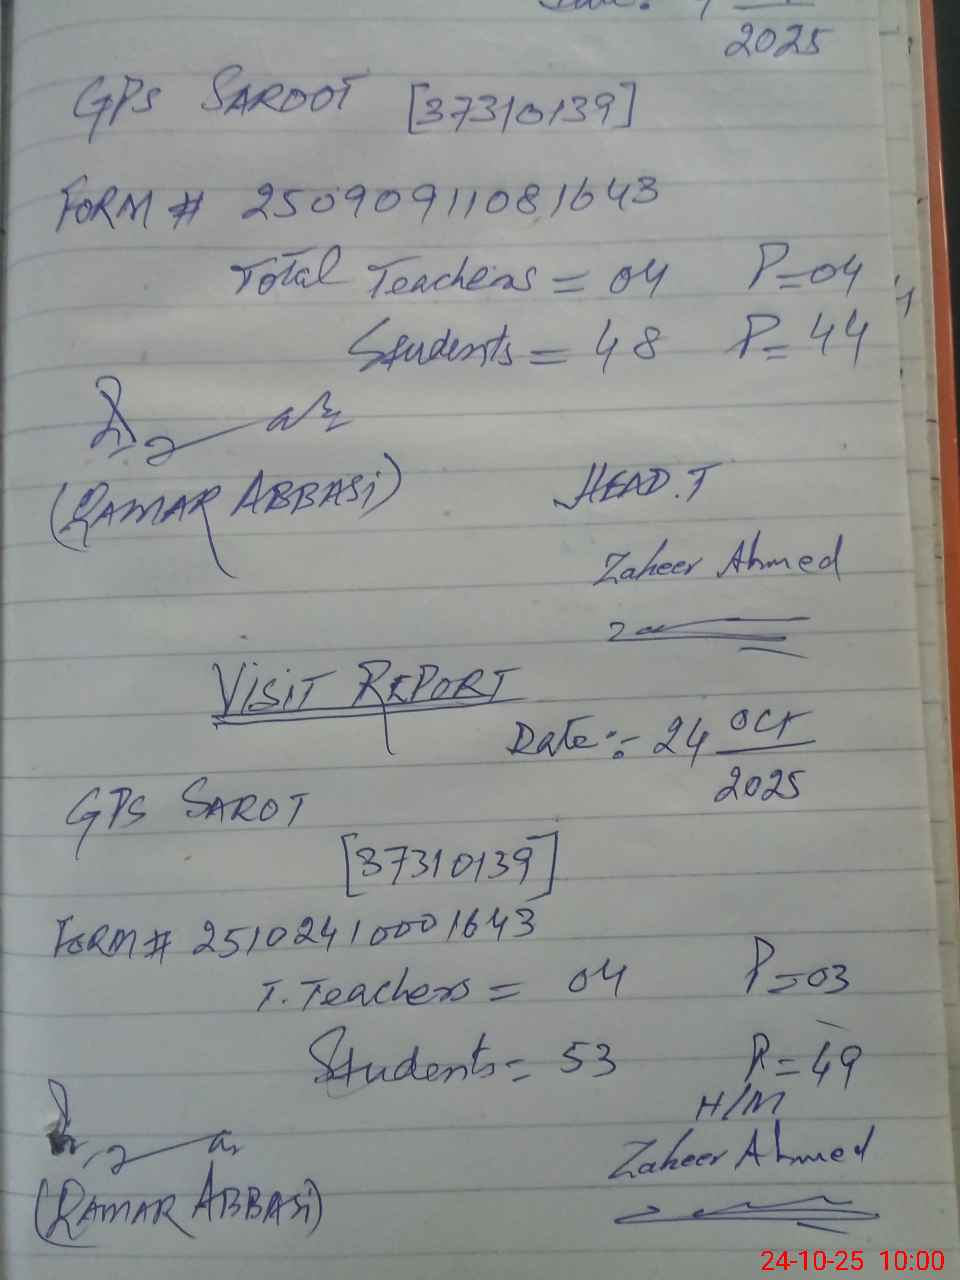 2025
GPS SAROOT [37310139]
FORM # 25090911081643
Total Teachers = 04 P=04
Students = 48 P=44
(QAMAR ABBASI) HEAD.T
Zaheer Ahmed
VISIT REPORT
Date:- 24 OCT
2025
GPS SAROT
[37310139]
FORM # 25102410001643
T. Teachers = 04 P=03
Students = 53 P=49
H/M
Zaheer Ahmed
(QAMAR ABBASI)
24-10-25 10:00